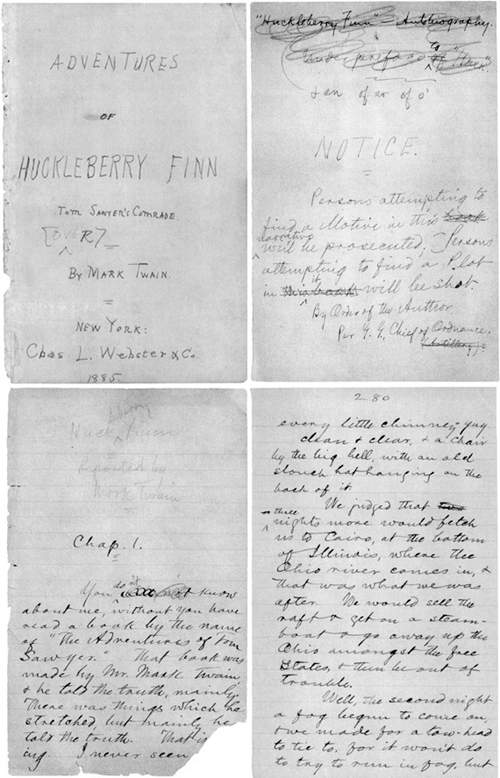 ADVENTURES
OF
HUCKLEBERRY FINN
TOM SAWYER'S COMRADE.
[OVER]
BY MARK TWAIN.
NEW YORK:
Chas L. Webster & Co.
1885.
"Huckleberry Finn" Autobiography.
& an of or of o'
NOTICE.
Persons attempting to
find a Motive in this book
narrative
will be prosecuted. Persons
attempting to find a Plot
it
in this book will be shot.
By Order of the Author
Per G. G., Chief of Ordnance.
(Artillery.)
Huck Finn
Reported by
Mark Twain
Chap. 1.
You do not know
about me, without you have
read a book by the name
of "The Adventures of Tom
Sawyer." That book was
made by Mr. Mark Twain,
& he told the truth, mainly.
There was things which he
stretched, but mainly he
told the truth. That is
ing. I never seen
280
every little chimney-jug
clean & clear, & a chair
by the big bell, with an old
slouch hat hanging on the
back of it.
We judged that two
three
nights more would fetch
us to Cairo, at the bottom
of Illinois, where the
Ohio river comes in, &
that was what we was
after. We would sell the
raft & get on a steam-
boat & go away up the
Ohio amongst the free
States, & then be out of
trouble.
Well, the second night
a fog begun to come on,
& we made for a tow-head
to tie to, for it won't do
to try to run in fog, but